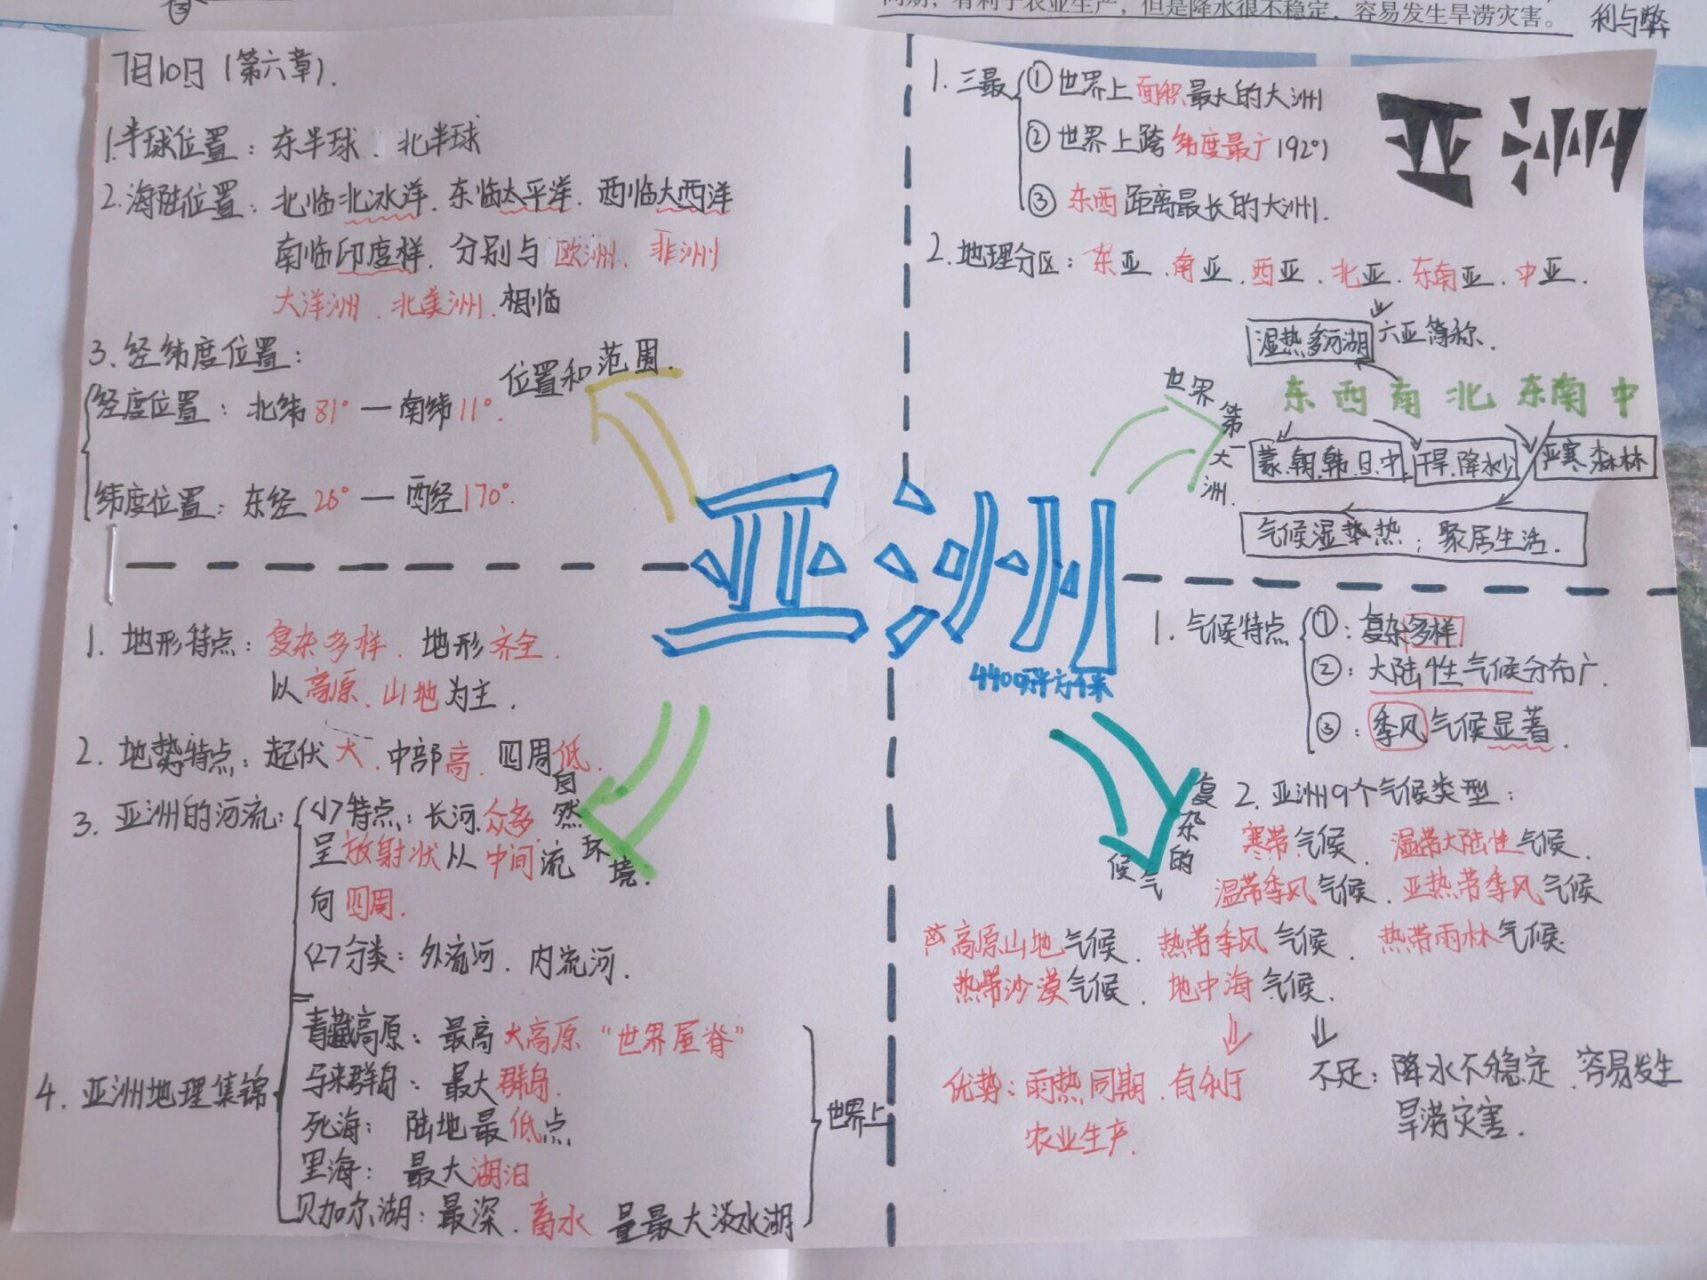 同期，有利于农业生产，但是降水很不稳定，容易发生旱涝灾害。
利与弊
7月10日（第六章）.
1.半球位置：东半球、北半球
2.海陆位置：北临北冰洋.东临太平洋.西临大西洋
南临印度样.分别与欧洲、非洲
大洋洲、北美洲.相临
3、经纬度位置：
经度位置：北纬81°—南纬11°.
纬度位置：东经26°—西经170°.
位置和范围.
1.三最
①世界上面积最大的大洲
②世界上跨纬度最广（92°）
③东西距离最长的大洲.
亚洲
2.地理分区：东亚、南亚、西亚、北亚、东南亚、中亚.
湿热多河湖
六亚简称.
东西南北东南中
世界第一大洲.
蒙.朝.韩.日.中
干旱.降水少
亚寒.森林
气候湿热；聚居生活.
亚洲
4400万平方千米
1.地形特点：复杂多样.地形齐全.
以高原、山地为主.
2.地势特点：起伏大.中部高.四周低.
3.亚洲的河流：
<1>特点：长河.众多
呈放射状从中间流
向四周.
<2>分类：外流河、内流河.
自然环境.
4.亚洲地理集锦
青藏高原：最高大高原“世界屋脊”
马来群岛：最大群岛.
死海：陆地最低点
里海：最大湖泊
贝加尔湖：最深.畜水量最大淡水湖
世界上
1.气候特点
①：复杂多样
②：大陆性气候分布广.
③：季风气候显著.
复杂的气候
2.亚洲9个气候类型：
寒带气候、温带大陆性气候.
温带季风气候.亚热带季风气候
高原山地气候、热带季风气候、热带雨林气候
热带沙漠气候、地中海气候.
优势：雨热同期.有利于
农业生产.
不足：降水不稳定.容易发生
旱涝灾害.